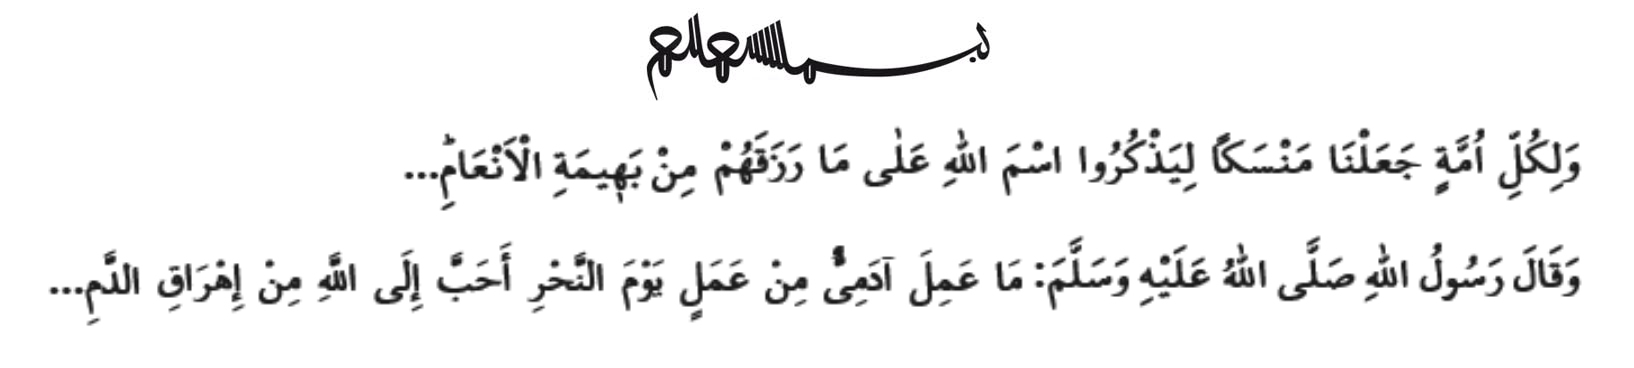 بسم الله الرحمن الرحيم
وَلِكُلِّ اُمَّةٍ جَعَلْنَا مَنْسَكًا لِيَذْكُرُوا اسْمَ اللهِ عَلٰى مَا رَزَقَهُمْ مِنْ بَهٖيمَةِ الْاَنْعَامِۜ...
وَقَالَ رَسُولُ اللهِ صَلَّى اللهُ عَلَيْهِ وَسَلَّمَ: مَا عَمِلَ آدَمِىٌّ مِنْ عَمَلٍ يَوْمَ النَّحْرِ أَحَبَّ إِلَى اللَّهِ مِنْ إِهْرَاقِ الدَّمِ...